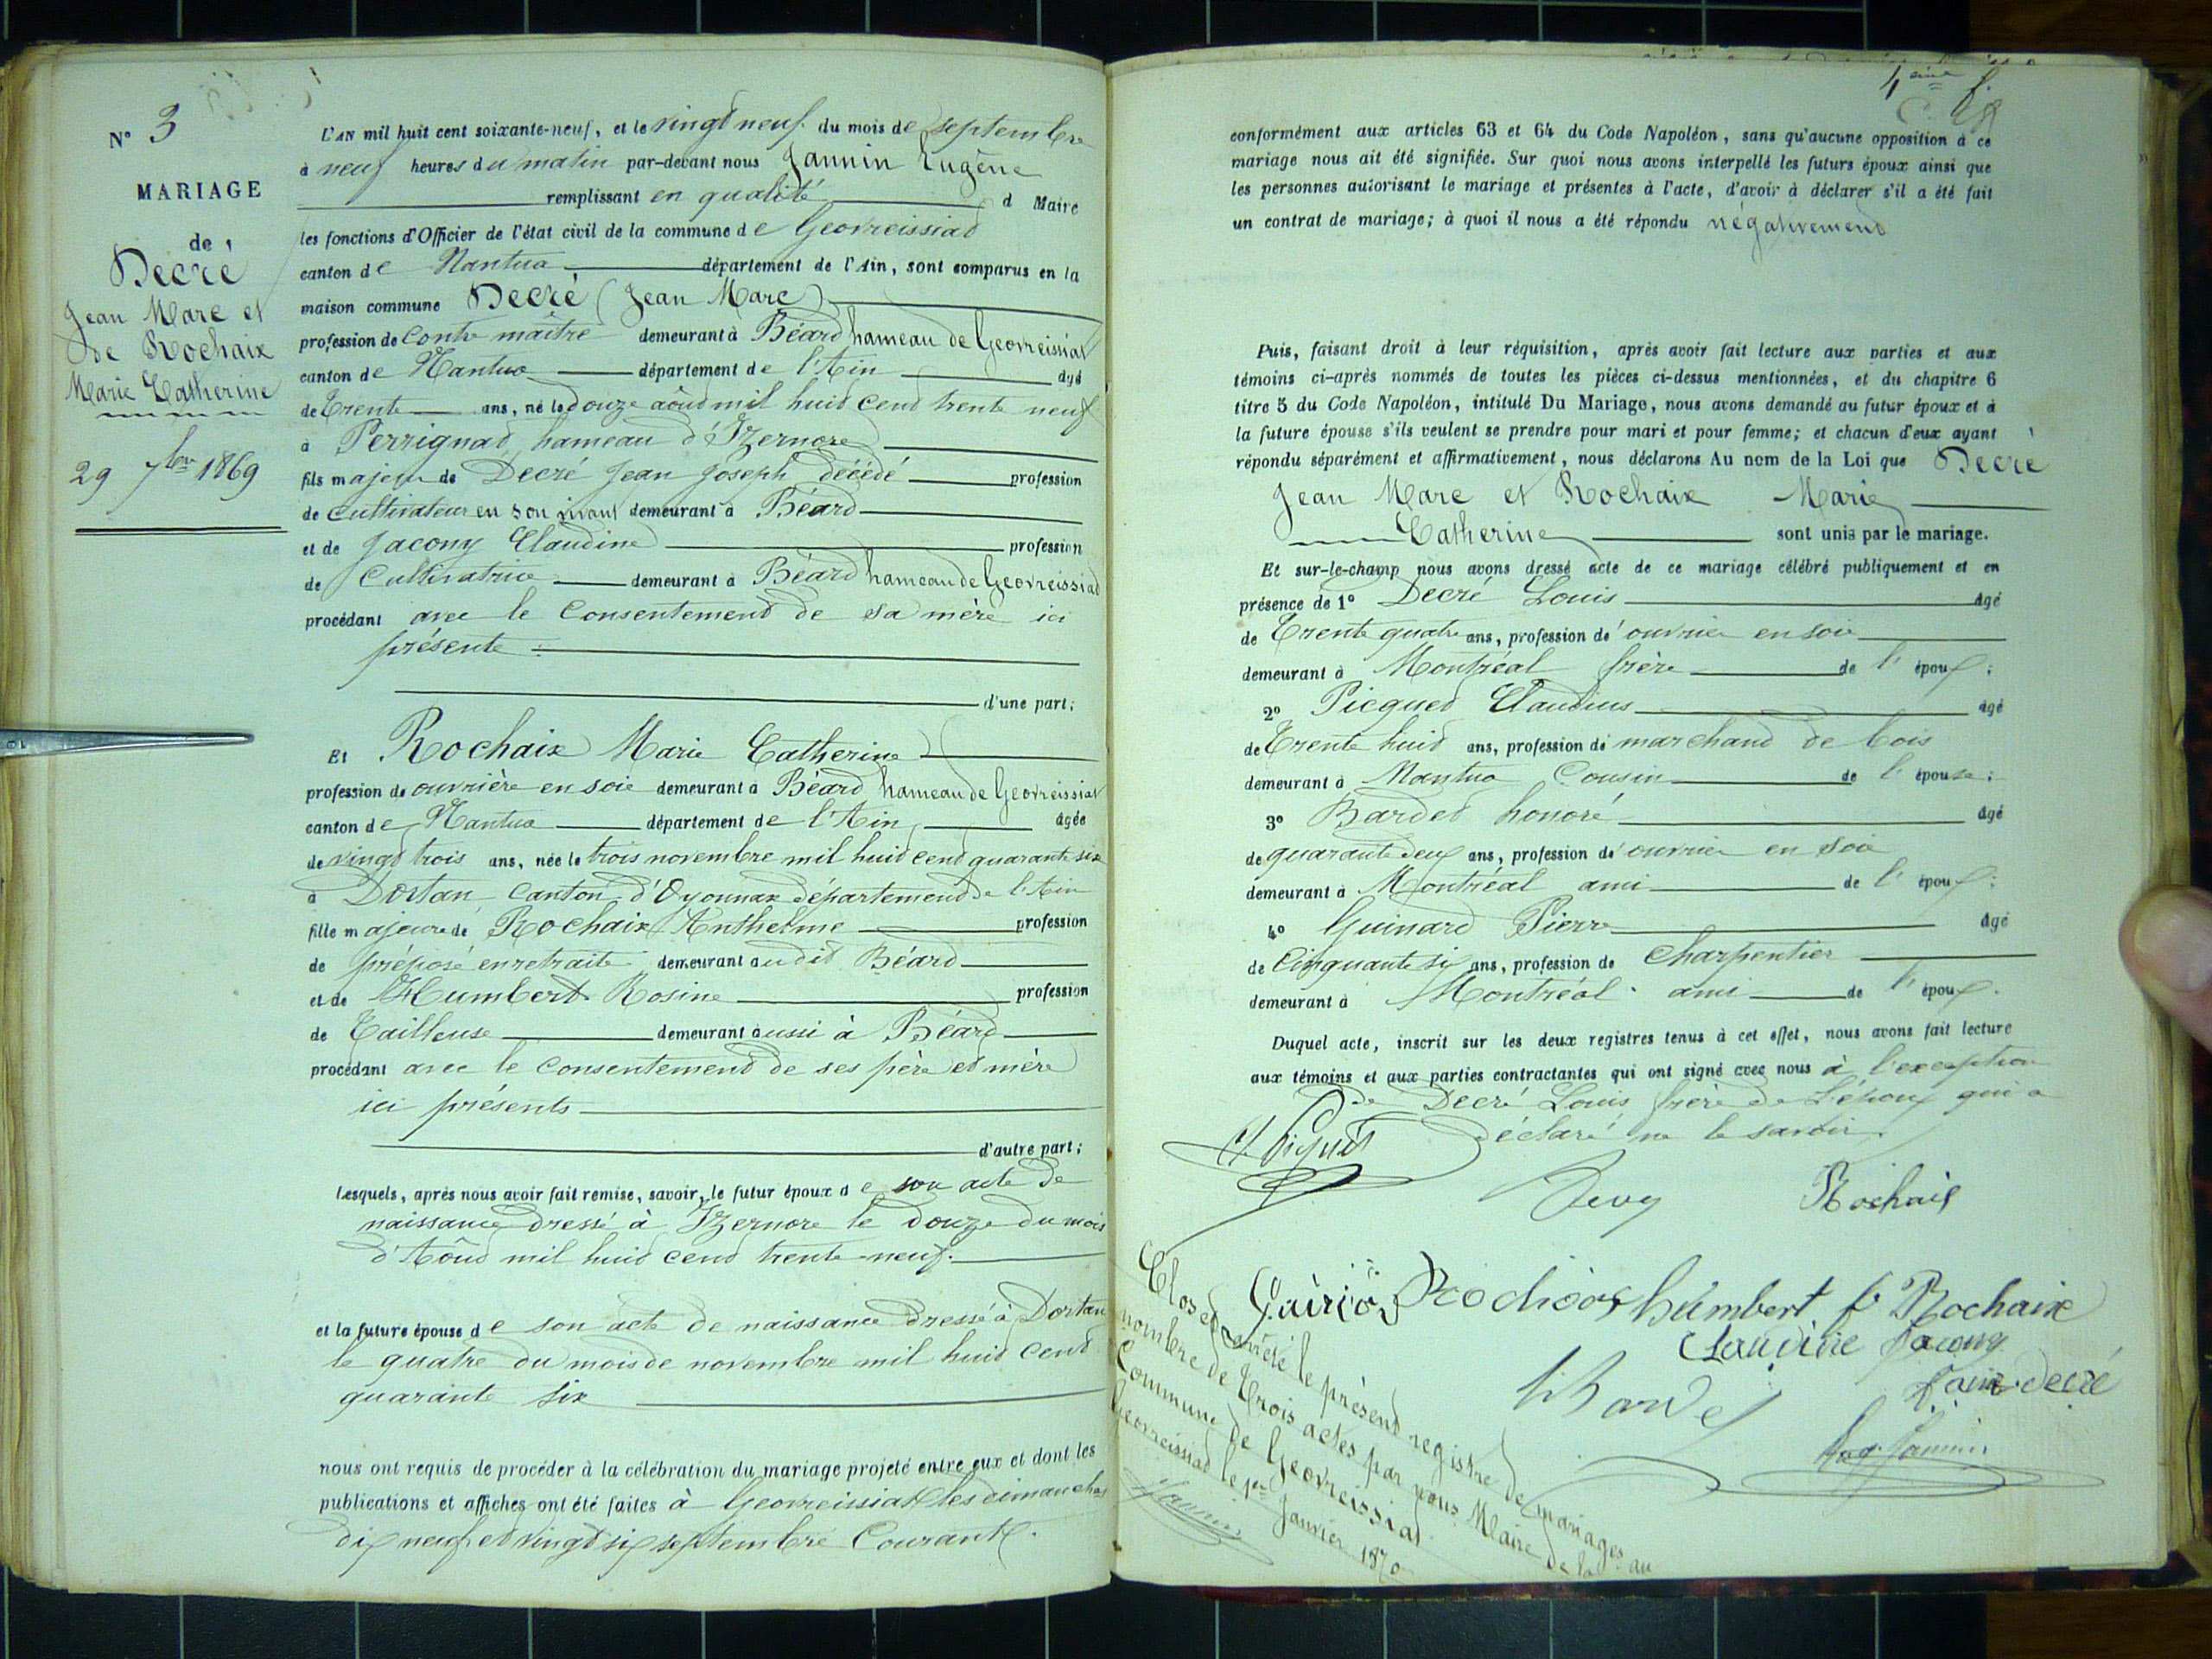 N° 3
MARIAGE
de
Decré
Jean Marc et
de Rochaix
Marie Catherine
29 7bre 1869
L'AN mil huit cent soixante-neuf, et le vingt neuf du mois de septembre
à neuf heures du matin par-devant nous Jannin Eugène
remplissant en qualité d Maire
les fonctions d'Officier de l'état civil de la commune de Geovreissiat
canton de Nantua département de l'Ain, sont comparus en la
maison commune Decré (Jean Marc)
profession de contre maître demeurant à Béard hameau de Geovreissiat
canton de Nantua département de l'Ain âgé
de trente ans, né le douze août mil huit cent trente neuf
à Perrignat hameau d'Izernore
fils majeur de Decré Jean Joseph décédé profession
de cultivateur en son vivant demeurant à Béard
et de Jacony Claudine profession
de Cultivatrice demeurant à Béard hameau de Geovreissiat
procédant avec le consentement de sa mère ici
présente
d'une part;
Et Rochaix Marie Catherine
profession de ouvrière en soie demeurant à Béard hameau de Geovreissiat
canton de Nantua département de l'Ain âgée
de vingt trois ans, née le trois novembre mil huit cent quarante six
à Dortan canton d'Oyonnax département de l'Ain
fille majeure de Rochaix Anthelme profession
de préposé en retraite demeurant audit Béard
et de Humbert Rosine profession
de Tailleuse demeurant aussi à Béard
procédant avec le consentement de ses père et mère
ici présents
d'autre part;
Lesquels, après nous avoir fait remise, savoir, le futur époux de son acte de
naissance dressé à Izernore le douze du mois
d'Aôut mil huit cent trente-neuf.
et la future épouse de son acte de naissance dressé à Dortan
le quatre du mois de novembre mil huit cent
quarante six
nous ont requis de procéder à la célébration du mariage projeté entre eux et dont les
publications et affiches ont été faites à Geovreissiat les dimanches
dix neuf et vingt six septembre Courant.
4eme f.
conformément aux articles 63 et 64 du Code Napoléon, sans qu'aucune opposition à ce
mariage nous ait été signifiée. Sur quoi nous avons interpellé les futurs époux ainsi que
les personnes autorisant le mariage et présentes à l'acte, d'avoir à déclarer s'il a été fait
un contrat de mariage; à quoi il nous a été répondu négativement
Puis, faisant droit à leur réquisition, après avoir fait lecture aux parties et aux
témoins ci-après nommés de toutes les pièces ci-dessus mentionnées, et du chapitre 6
titre 5 du Code Napoléon, intitulé Du Mariage, nous avons demandé au futur époux et à
la future épouse s'ils veulent se prendre pour mari et pour femme; et chacun d'eux ayant
répondu séparément et affirmativement, nous déclarons Au nom de la Loi que Decré
Jean Marc et Rochaix Marie
Catherine sont unis par le mariage.
Et sur-le-champ nous avons dressé acte de ce mariage célébré publiquement et en
présence de 1° Decré Louis âgé
de Trente quatre ans, profession de ouvrier en soie
demeurant à Montréal frère de l'époux;
2° Picquet Claudius âgé
de Trente huit ans, profession de marchand de bois
demeurant à Nantua Cousin de l'épouse;
3° Bardet honoré âgé
de quarante deux ans, profession de ouvrier en soie
demeurant à Montréal ami de l'époux;
4° Guinard Pierre âgé
de Cinquante six ans, profession de Charpentier
demeurant à Montréal ami de l'époux.
Duquel acte, inscrit sur les deux registres tenus à cet effet, nous avons fait lecture
aux témoins et aux parties contractantes qui ont signé avec nous à l'exception
de Decré Louis frère de l'époux qui a
déclaré ne le savoir
Rochaix
humbert f Rochaix
Claudine Jacony
decré
Eug. Jannin
Clos et arrêté le présent registre de mariages au
nombre de trois actes par nous Maire de la
Commune de Geovreissiat.
Geovreissiat le 1er Janvier 1870
Jannin